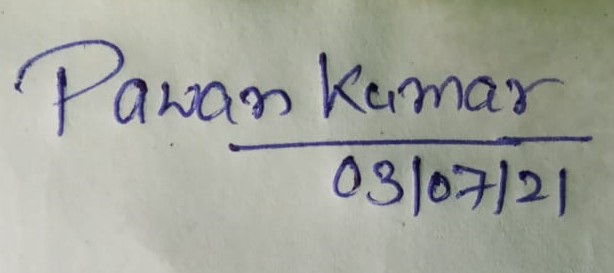 Pawan Kumar
03/07/21